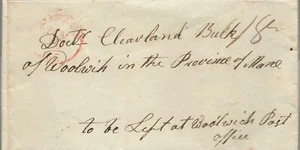 Doctr Cleavland Buck
of Woolwich in the Province of Maine
to be Left at Woolwich Post
office